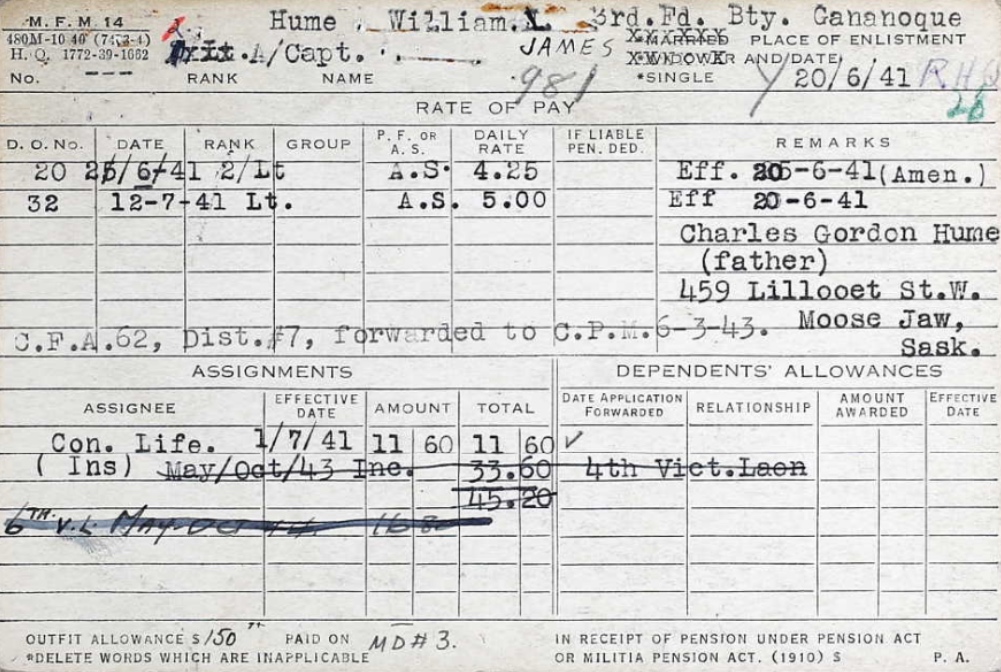 M. F. M. 14 Hume William. 3rd. Fd. Bty. Gananoque
480M-10 40 (7473-4) JAMES *MARRIED PLACE OF ENLISTMENT
H. Q. 1772-39-1662 A/Capt. *WIDOWER AND/DATE/
No. --- RANK NAME 981 *SINGLE 20/6/41 R.H.Q
26
RATE OF PAY
D. O. No. DATE RANK GROUP P. F. OR A. S. DAILY RATE IF LIABLE PEN. DED. REMARKS
20 25/6/41 2/Lt A.S. 4.25 Eff. 20-6-41(Amen.)
32 12-7-41 Lt. A.S. 5.00 Eff 20-6-41
Charles Gordon Hume
(father)
459 Lillooet St.W.
Moose Jaw,
C.F.A.62, Dist.#7, forwarded to C.P.M.6-3-43.
Sask.
ASSIGNMENTS DEPENDENTS' ALLOWANCES
ASSIGNEE EFFECTIVE DATE AMOUNT TOTAL DATE APPLICATION FORWARDED RELATIONSHIP AMOUNT AWARDED EFFECTIVE DATE
Con. Life. 1/7/41 11 60 11 60 ✓
( Ins) May/Oct/43 Inc. 33.60 4th Vict.Laon
45.20
6TH V.L MAY-OCT 44. 16 80
OUTFIT ALLOWANCE $ 150 PAID ON MD# 3. IN RECEIPT OF PENSION UNDER PENSION ACT
*DELETE WORDS WHICH ARE INAPPLICABLE OR MILITIA PENSION ACT. (1910) $ P. A.